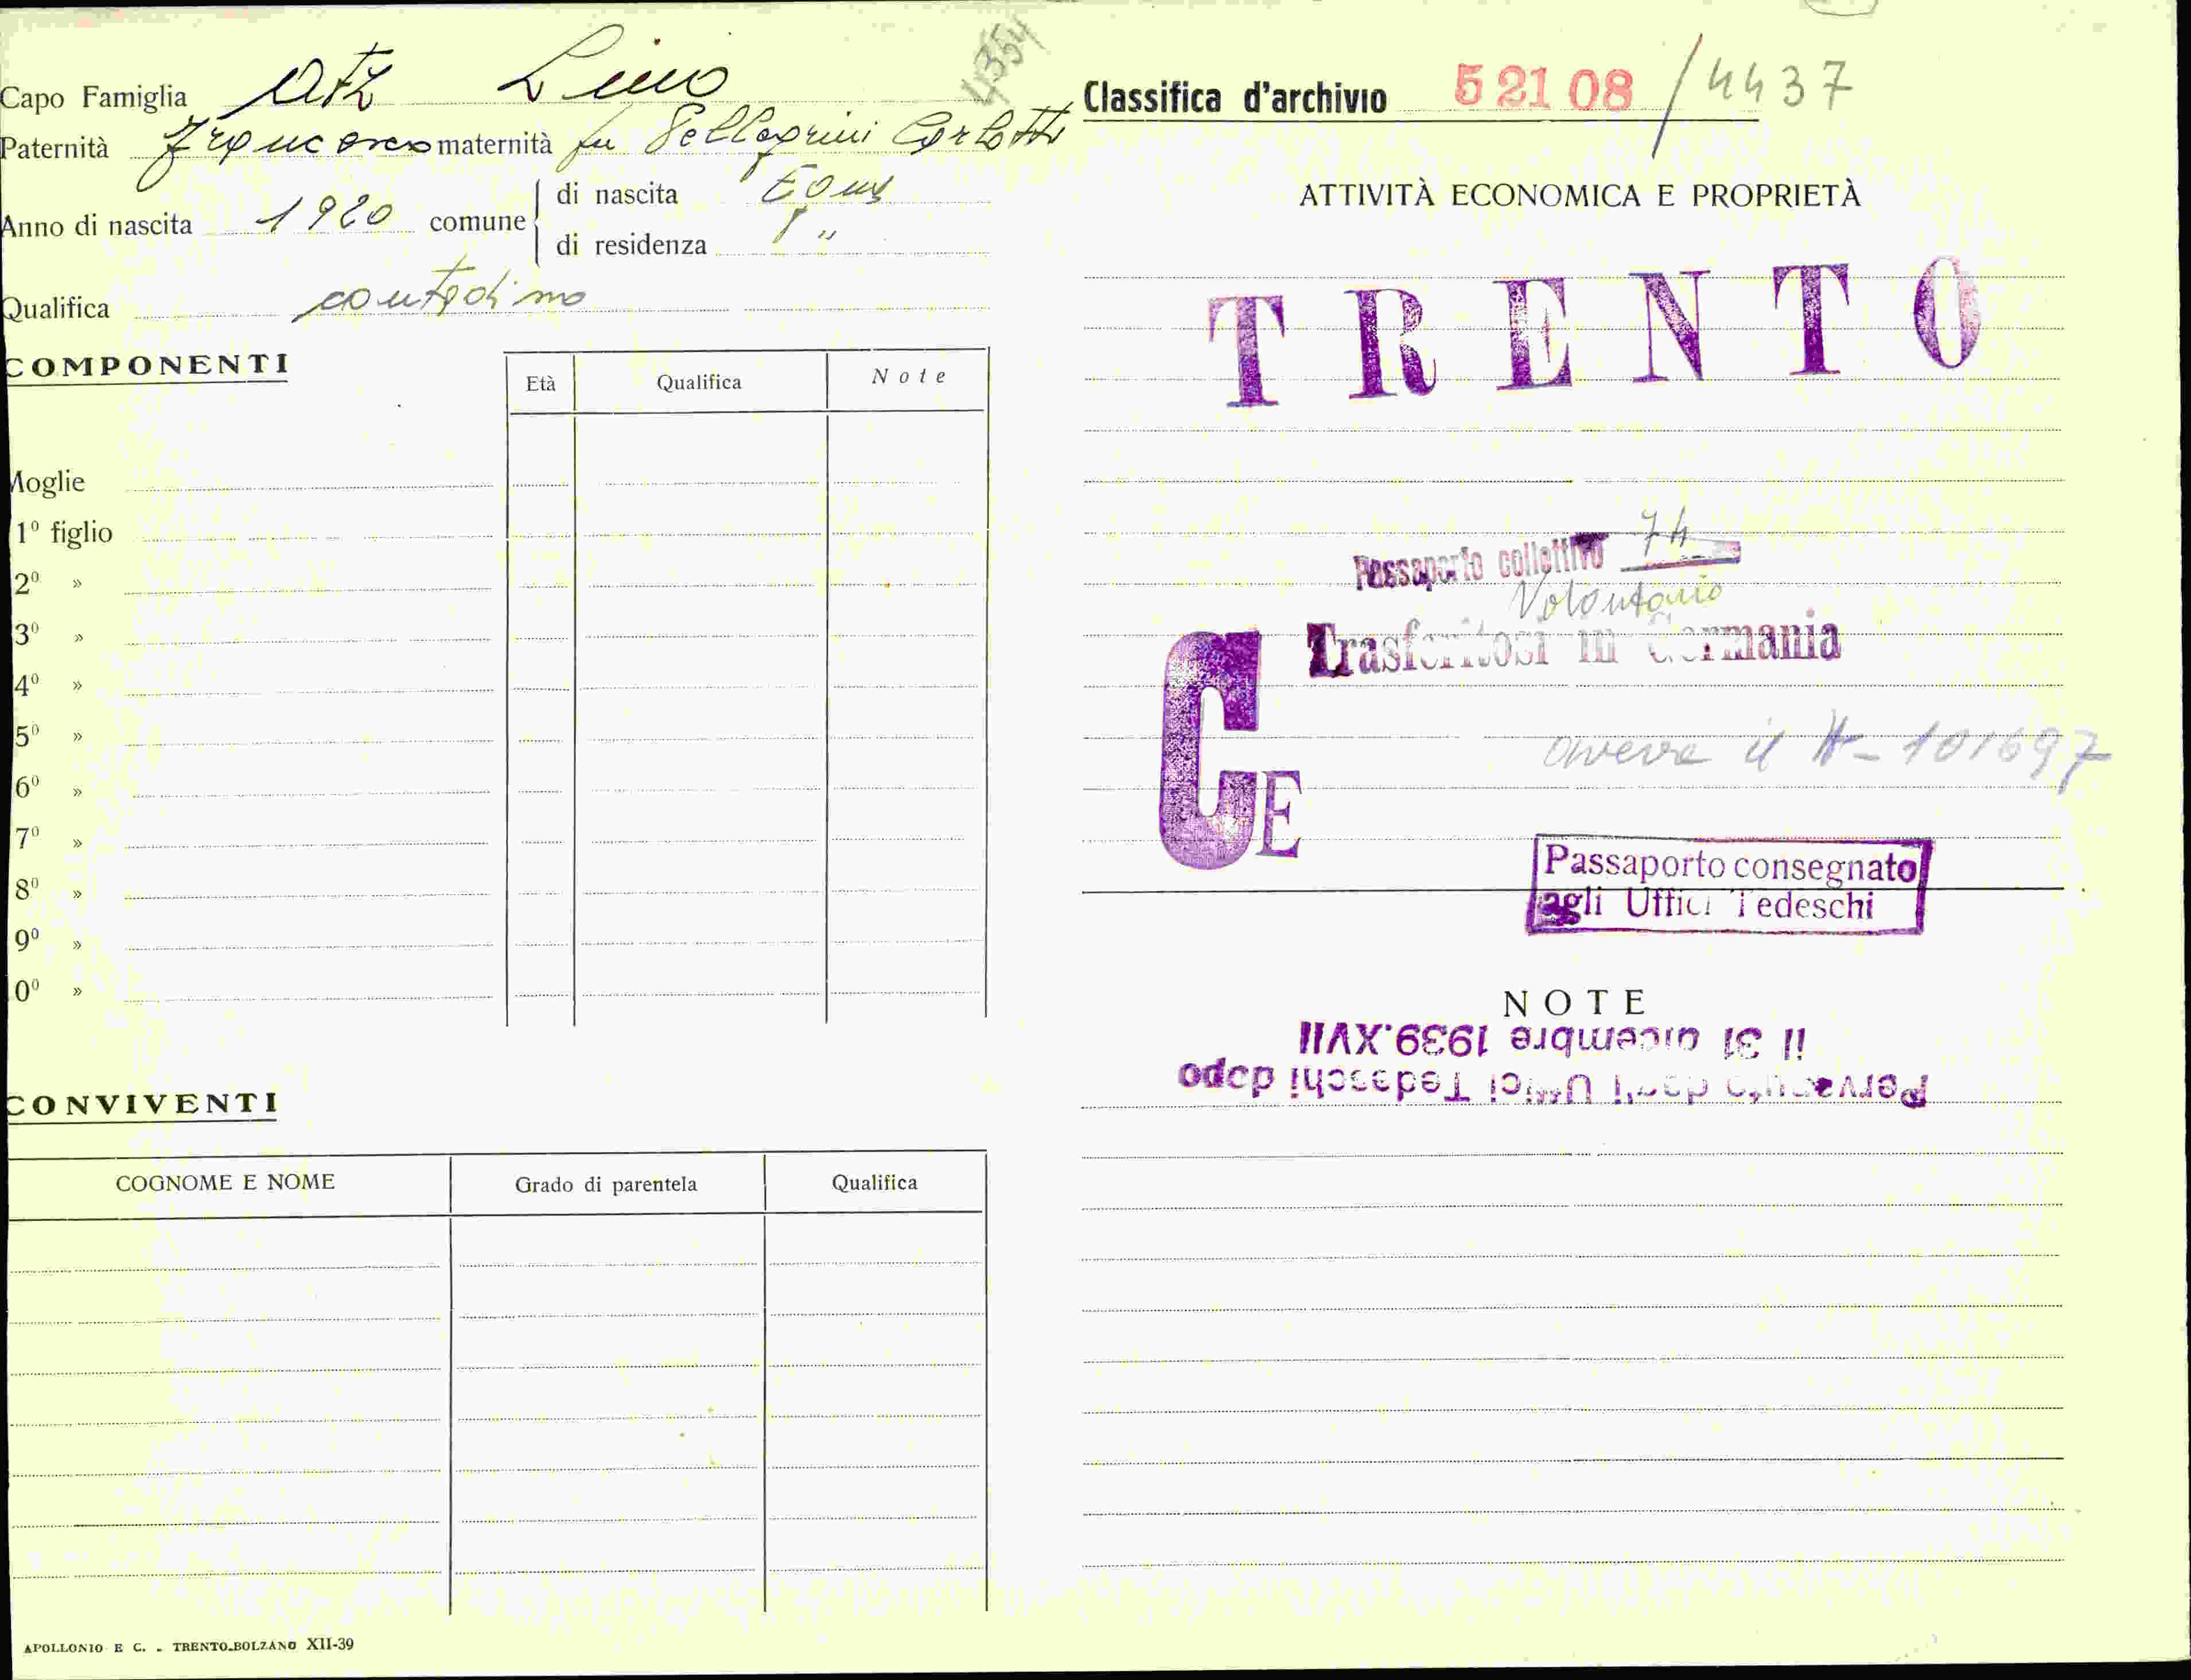 Capo Famiglia Atz Lino
Paternità Francesco maternità fu Pellegrini Carlotta
Anno di nascita 1920 comune
di nascita Egna
di residenza "
Qualifica contadino
COMPONENTI
Età Qualifica Note
Moglie
1º figlio
2º »
3º »
4º »
5º »
6º »
7º »
8º »
9º »
0º »
CONVIVENTI
COGNOME E NOME Grado di parentela Qualifica
APOLLONIO E C. - TRENTO-BOLZANO XII-39
4354
Classifica d'archivio 52108 / 4437
ATTIVITÀ ECONOMICA E PROPRIETÀ
TRENTO
Passaporto collettivo 74
Volontario
Trasferitosi in Germania
CE
aveva il A-101697
Passaporto consegnato
agli Uffici Tedeschi
NOTE
Pervenuto dagli Uffici Tedeschi dopo
il 31 dicembre 1939.XVII